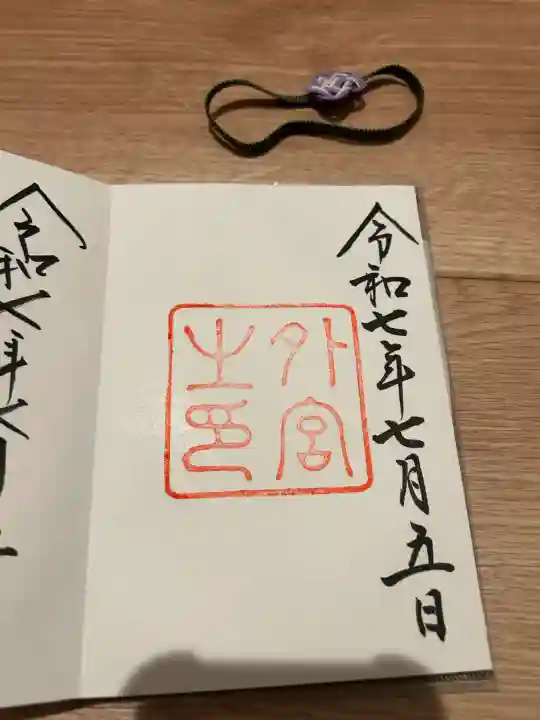 令和七年七月五日
外宮
之印
令和七年